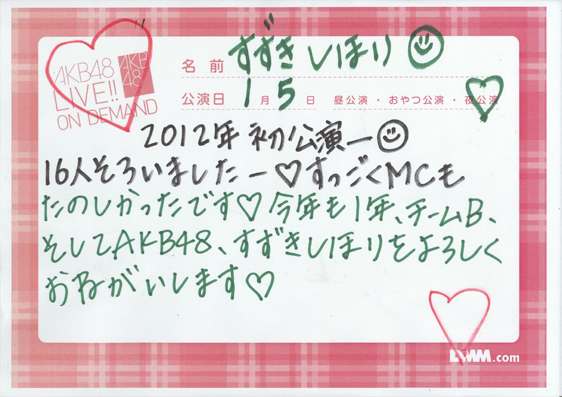 AKB48
LIVE!!
ON DEMAND
AKB
48
名前 すずきしほり
公演日 1月5日 昼公演・おやつ公演・夜公演
2012年初公演ー
16人そろいましたー♡すっごくMCも
たのしかったです♡今年も1年、チームB、
そしてAKB48、すずきしほりをよろしく
おねがいします♡
DMM.com